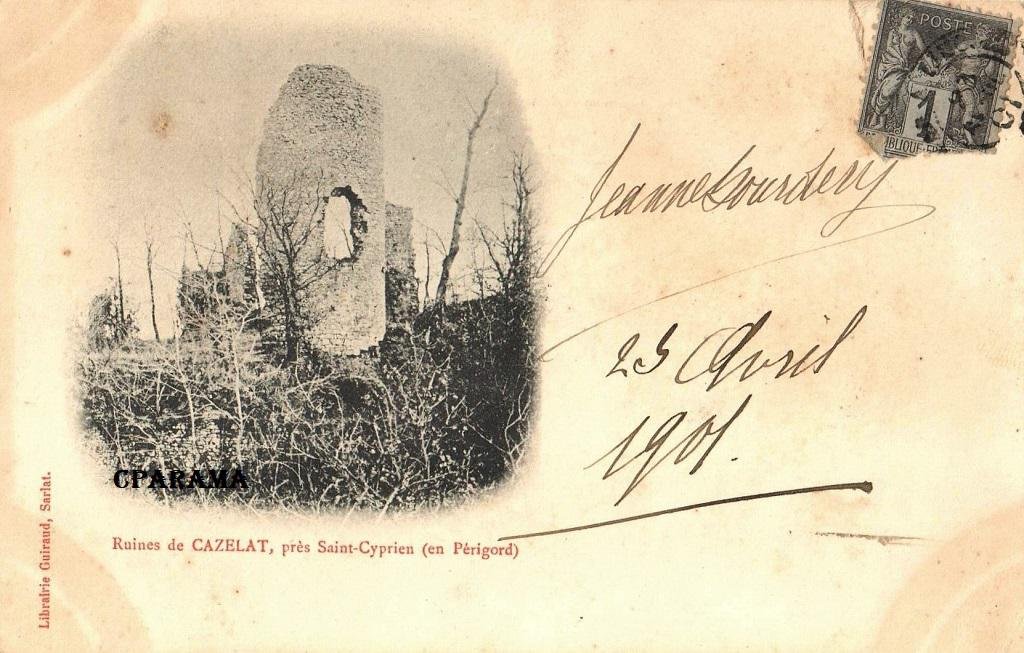 POSTE
1
BLIQUE-FR
Jeanne Lourdery
25 Avril
1901.
CPARAMA
Ruines de CAZELAT, près Saint-Cyprien (en Périgord)
Librairie Guiraud, Sarlat.